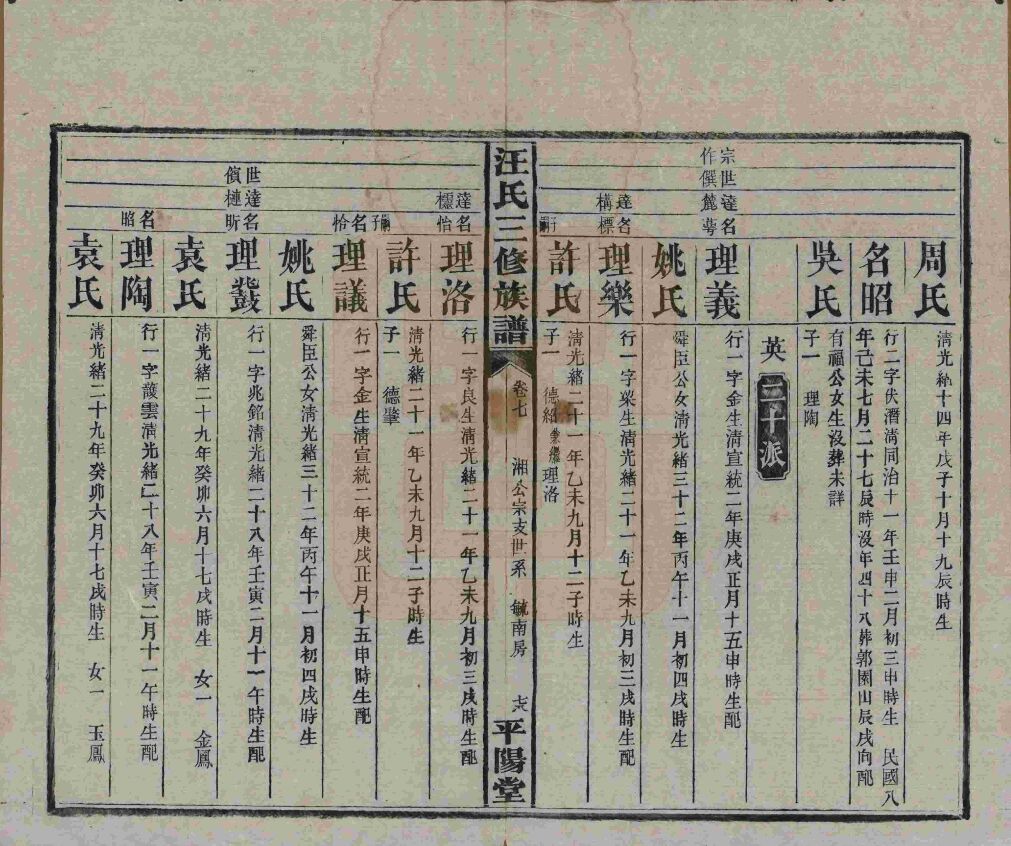 周氏 清光緒十四年戊子十月十九辰時生
名昭 行二字伏潛清同治十一年壬申二月初三申時生 民國八年己未七月二十七辰時沒年四十八葬郭園山辰戌向配
吳氏 有福公女生沒葬未詳
子一 理陶
英 二十派
宗世達名
作僎麓蕚
理義 行一字金生清宣統二年庚戌正月十五申時生配
姚氏 舜臣公女清光緒三十二年丙午十一月初四戌時生
達名
構標
理樂 行一字梁生清光緒二十一年乙未九月初三戌時生配
許氏 清光緒二十一年乙未九月十二子時生
子一 德紹兼繼理洛
汪氏三修族譜
卷七 湘公宗支世系 毓南房
平陽堂
達名
欞怡
理洛 行一字良生清光緒二十一年乙未九月初三戌時生配
許氏 清光緒二十一年乙未九月十二子時生
子一 德肇
名恰
理議 行一字金生清宣統二年庚戌正月十五申時生配
姚氏 舜臣公女清光緒三十二年丙午十一月初四戌時生
世達名
儐槤昕
理 行一字兆銘清光緒二十八年壬寅二月十一午時生配
袁氏 清光緒二十九年癸卯六月十七戌時生 女一 金鳳
名昭
理陶 行一字護雲清光緒二十八年壬寅二月十一午時生配
袁氏 清光緒二十九年癸卯六月十七戌時生 女一 玉鳳